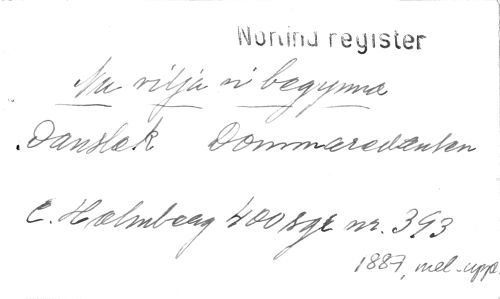 Norlind register
Nu vilja vi begynna
Danslek Dommaredansen
C. Holmberg 400 sgr nr. 393
1887, mel-uppt.